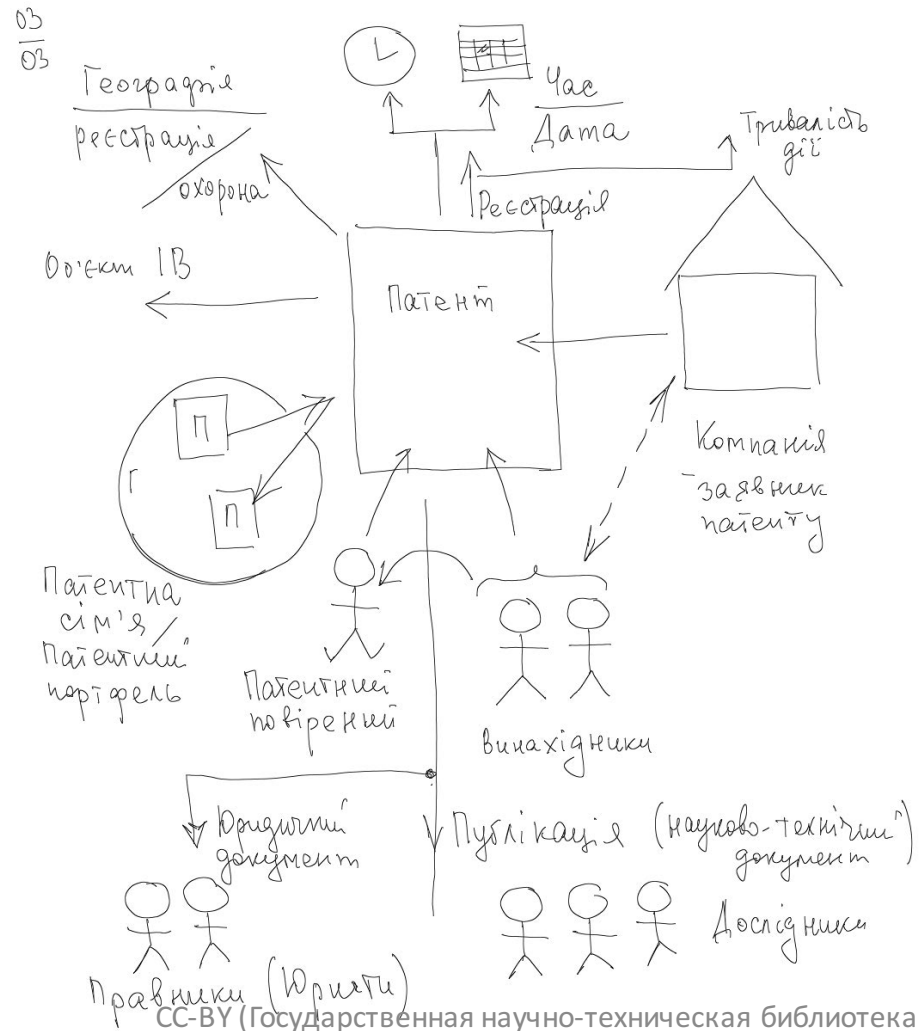 03
03
Географія
реєстрація
охорона
Час
Дата
Тривалість
дії
Реєстрація
Об'єкт ІВ
Патент
П
Г
П
Компанія
заявник
патенту
Патентна
сім'я /
Патентний
портфель
Патентний
повірений
Винахідники
Юридичний
документ
Публікація (науково-технічний
документ)
Дослідники
Правники (Юристи)
CC-BY (Государственная научно-техническая библиотека